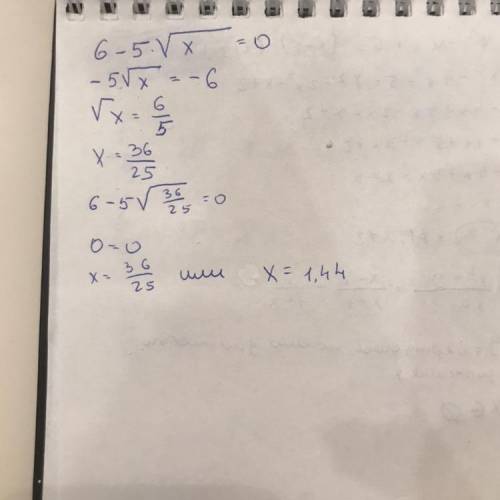 6 - 5·√x = 0
-5√x = -6
√x = 6/5
x = 36/25
6 - 5√36/25 = 0
0 = 0
x = 36/25 или x = 1,44